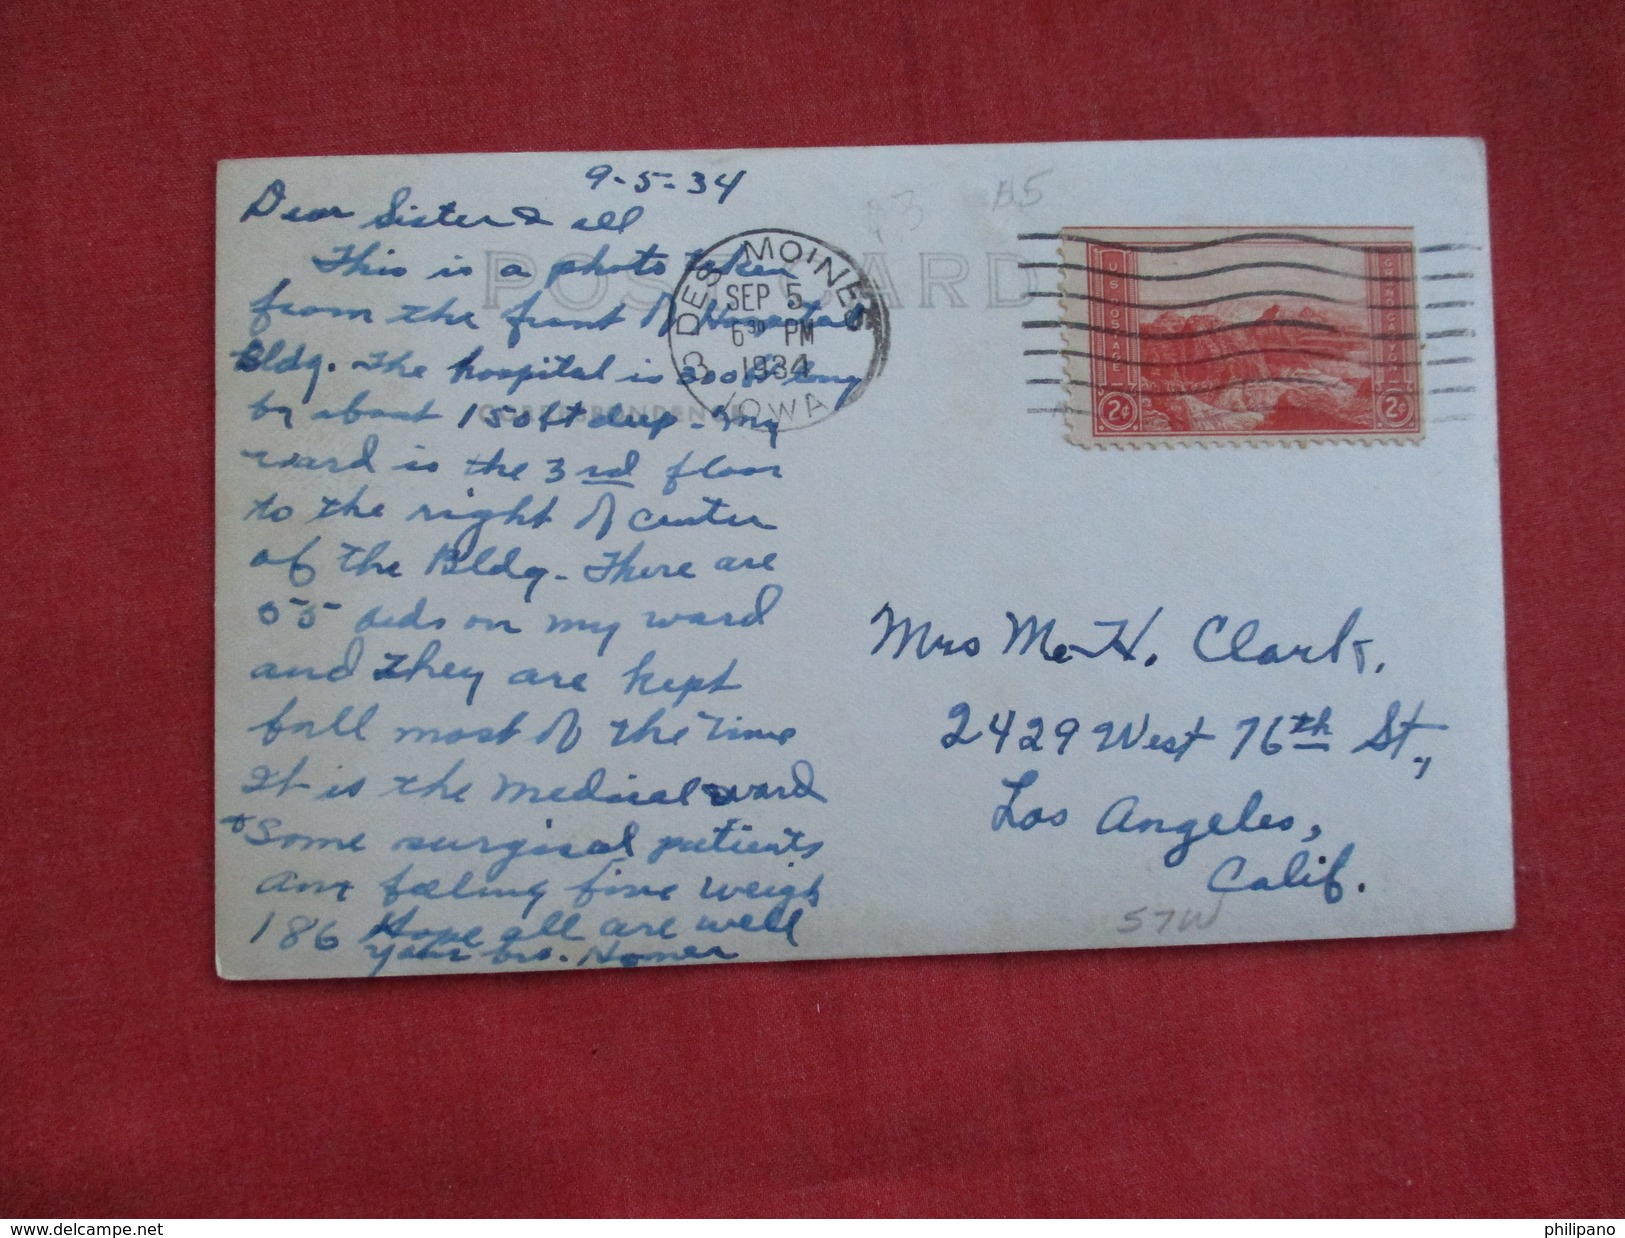 9-5-34
Dear Sister & all
This is a photo taken
from the front of Hospital
Bldg. The hospital is 300 ft long
by about 150 ft deep - my
ward is the 3rd floor
to the right of center
of the Bldg - There are
55 beds on my ward
and they are kept
full most of the time
It is the medical ward
& some surgical patients
Am feeling fine weigh
186 Hope all are well
Your bro. Homer
POST CARD
CORRESPONDENCE
DES MOINES
SEP 5
6 30 PM
1934
IOWA
A3
A5
U.S. POSTAGE
GRAND CANYON
2¢ 2¢
Mrs H. Clark,
2429 West 76th St.,
Los Angeles,
Calif.
57W
www.delcampe.net
philipano